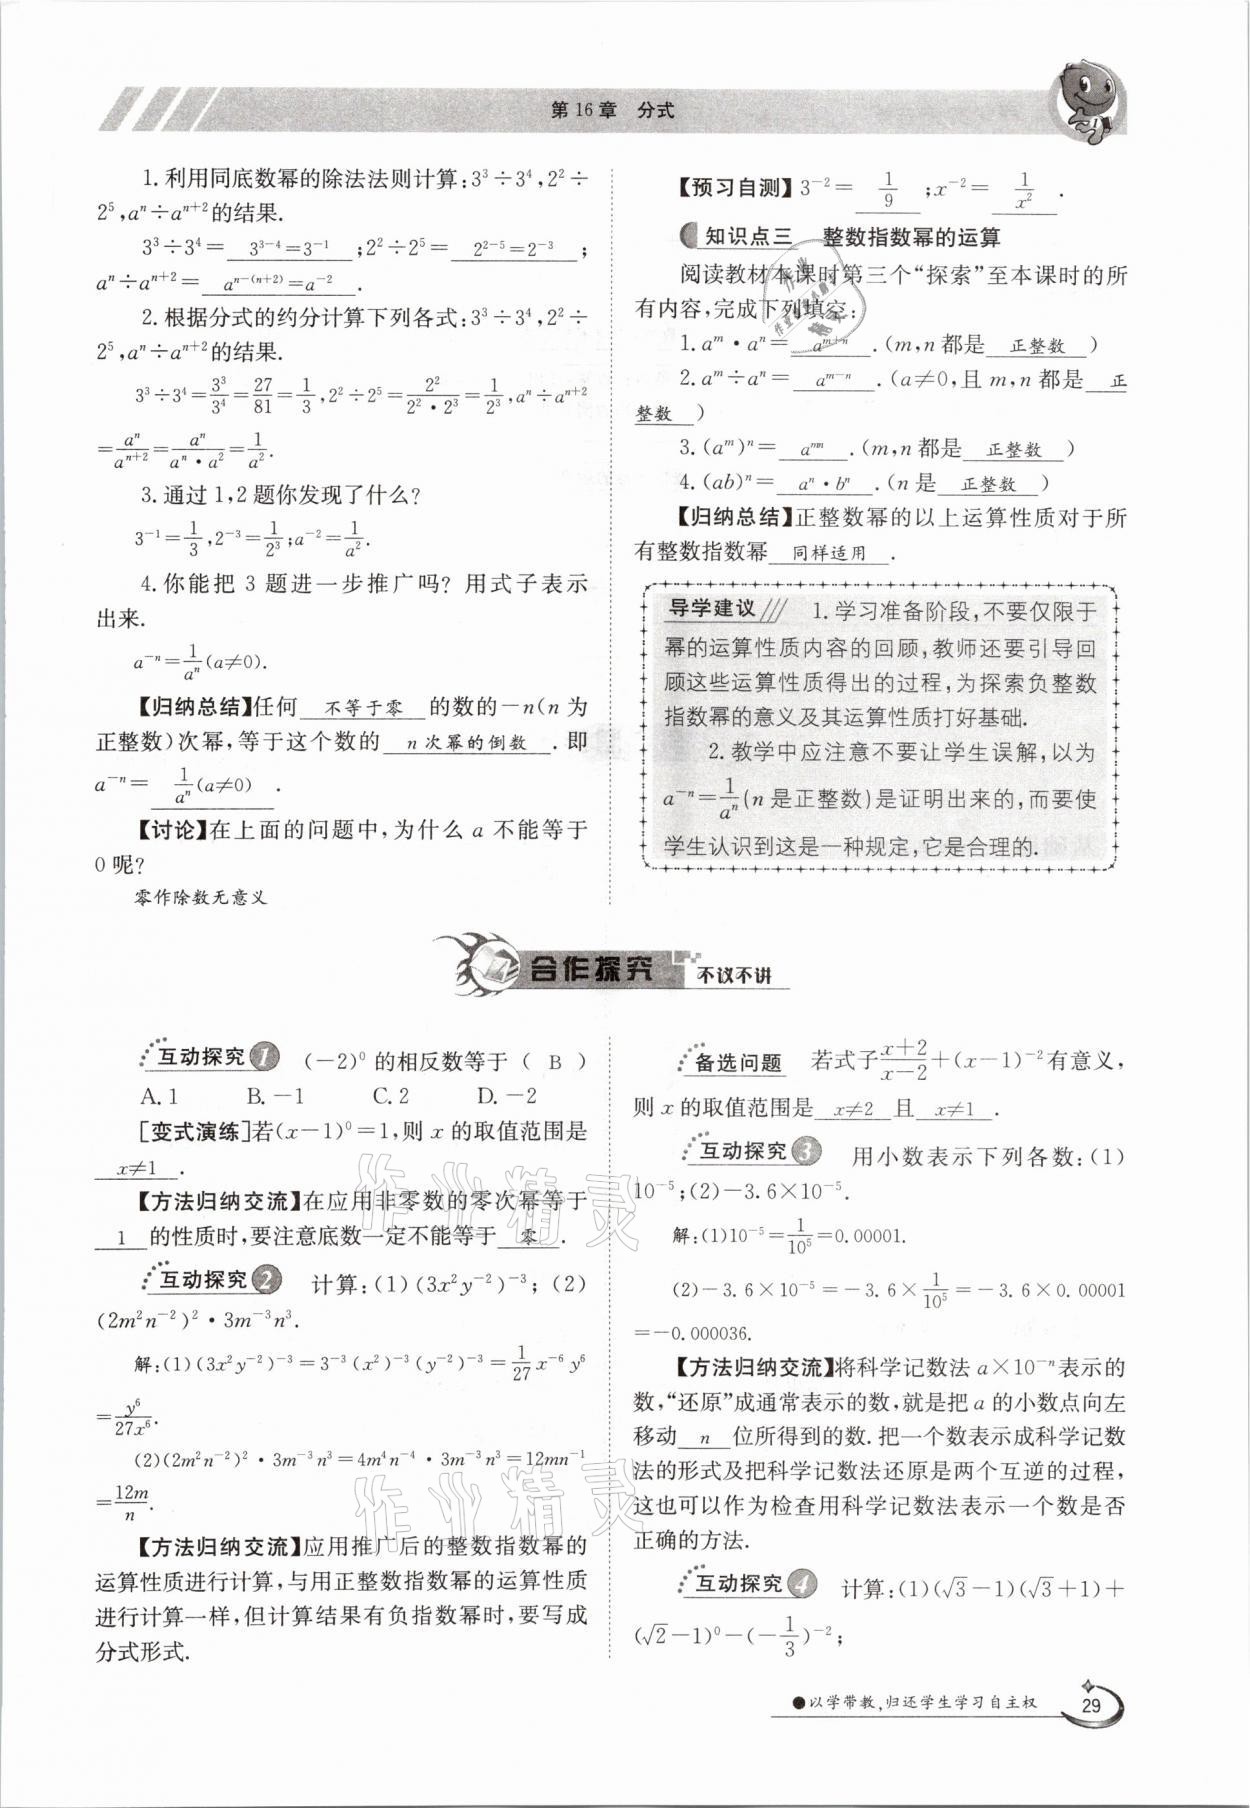 第16章　分式
1. 利用同底数幂的除法法则计算:3³÷3⁴,2²÷
2⁵,aⁿ÷aⁿ⁺²的结果.
3³÷3⁴= 3³⁻⁴=3⁻¹ ;2²÷2⁵= 2²⁻⁵=2⁻³ ;
aⁿ÷aⁿ⁺²= aⁿ⁻⁽ⁿ⁺²⁾=a⁻² .
2. 根据分式的约分计算下列各式:3³÷3⁴,2²÷
2⁵,aⁿ÷aⁿ⁺²的结果.
3³÷3⁴=3³/3⁴=27/81=1/3,2²÷2⁵=2²/(2²·2³)=1/2³,aⁿ÷aⁿ⁺²
=aⁿ/aⁿ⁺²=aⁿ/(aⁿ·a²)=1/a².
3. 通过1,2题你发现了什么?
3⁻¹=1/3,2⁻³=1/2³;a⁻²=1/a².
4. 你能把3题进一步推广吗? 用式子表示
出来.
a⁻ⁿ=1/aⁿ(a≠0).
【归纳总结】任何 不等于零 的数的-n(n为
正整数)次幂,等于这个数的 n次幂的倒数 .即
a⁻ⁿ= 1/aⁿ(a≠0) .
【讨论】在上面的问题中,为什么a不能等于
0呢?
零作除数无意义
【预习自测】3⁻²= 1/9 ;x⁻²= 1/x² .
知识点三　整数指数幂的运算
阅读教材本课时第三个“探索”至本课时的所
有内容,完成下列填空:
1. aᵐ·aⁿ= aᵐ⁺ⁿ .(m,n都是 正整数 )
2. aᵐ÷aⁿ= aᵐ⁻ⁿ .(a≠0,且m,n都是 正
整数 )
3. (aᵐ)ⁿ= aᵐⁿ .(m,n都是 正整数 )
4. (ab)ⁿ= aⁿ·bⁿ .(n是 正整数 )
【归纳总结】正整数幂的以上运算性质对于所
有整数指数幂 同样适用 .
导学建议 1. 学习准备阶段,不要仅限于
幂的运算性质内容的回顾,教师还要引导回
顾这些运算性质得出的过程,为探索负整数
指数幂的意义及其运算性质打好基础.
2. 教学中应注意不要让学生误解,以为
a⁻ⁿ=1/aⁿ(n是正整数)是证明出来的,而要使
学生认识到这是一种规定,它是合理的.
合作探究 不议不讲
互动探究1 (-2)⁰的相反数等于( B )
A. 1　B. -1　C. 2　D. -2
[变式演练]若(x-1)⁰=1,则x的取值范围是
x≠1 .
【方法归纳交流】在应用非零数的零次幂等于
1 的性质时,要注意底数一定不能等于 零 .
互动探究2 计算:(1)(3x²y⁻²)⁻³;(2)
(2m²n⁻²)²·3m⁻³n³.
解:(1)(3x²y⁻²)⁻³=3⁻³(x²)⁻³(y⁻²)⁻³=1/27x⁻⁶y⁶
=y⁶/27x⁶.
(2)(2m²n⁻²)²·3m⁻³n³=4m⁴n⁻⁴·3m⁻³n³=12mn⁻¹
=12m/n.
【方法归纳交流】应用推广后的整数指数幂的
运算性质进行计算,与用正整数指数幂的运算性质
进行计算一样,但计算结果有负指数幂时,要写成
分式形式.
备选问题 若式子(x+2)/(x-2)+(x-1)⁻²有意义,
则x的取值范围是 x≠2 且 x≠1 .
互动探究3 用小数表示下列各数:(1)
10⁻⁵;(2)-3.6×10⁻⁵.
解:(1)10⁻⁵=1/10⁵=0.00001.
(2)-3.6×10⁻⁵=-3.6×1/10⁵=-3.6×0.00001
=-0.000036.
【方法归纳交流】将科学记数法a×10⁻ⁿ表示的
数,“还原”成通常表示的数,就是把a的小数点向左
移动 n 位所得到的数. 把一个数表示成科学记数
法的形式及把科学记数法还原是两个互逆的过程,
这也可以作为检查用科学记数法表示一个数是否
正确的方法.
互动探究4 计算:(1)(√3-1)(√3+1)+
(√2-1)⁰-(-1/3)⁻²;
●以学带教,归还学生学习自主权
29
作业精灵
作业精灵